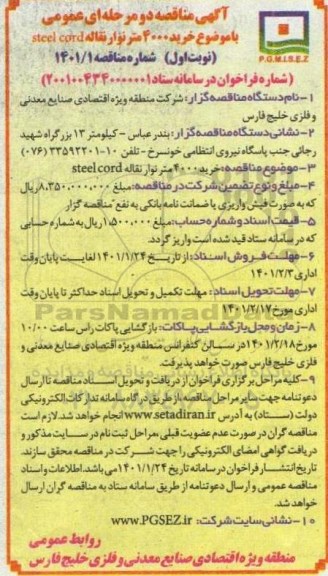 آگهی مناقصه دو مرحله ای عمومی
با موضوع خرید ۴۰۰۰ متر نوار نقاله steel cord
(نوبت اول) شماره مناقصه ۱۴۰۱/۱
(شماره فراخوان در سامانه ستاد ۲۰۰۱۰۰۴۳۴۰۰۰۰۰۱)
P.G.M.I.S.E.Z
۱- نام دستگاه مناقصه گزار: شرکت منطقه ویژه اقتصادی صنایع معدنی
و فلزی خلیج فارس
۲- نشانی دستگاه مناقصه گزار: بندرعباس - کیلومتر ۱۳ بزرگراه شهید
رجائی جنب پاسگاه نیروی انتظامی خونسرخ - تلفن ۱۰-۳۳۵۹۲۲۰۱ (۰۷۶)
۳- موضوع مناقصه: خرید ۴۰۰۰ متر نوار نقاله steel cord
۴- مبلغ و نوع تضمین شرکت در مناقصه: مبلغ ۸,۳۵۰,۰۰۰,۰۰۰ ریال
که به صورت فیش واریزی یا ضمانت نامه بانکی به نفع مناقصه گزار
۵- قیمت اسناد و شماره حساب: مبلغ ۱,۵۰۰,۰۰۰ ریال به شماره حسابی
که در سامانه ستاد قید شده است واریز گردد.
۶- مهلت فروش اسناد: از تاریخ ۱۴۰۱/۱/۲۴ لغایت پایان وقت
اداری ۱۴۰۱/۲/۳
۷- مهلت تحویل اسناد: مهلت تکمیل و تحویل اسناد حداکثر تا پایان وقت
اداری مورخ ۱۴۰۱/۲/۱۷
۸- زمان و محل بازگشایی پاکات: بازگشایی پاکات راس ساعت ۱۰/۰۰
مورخ ۱۴۰۱/۲/۱۸ در سالن کنفرانس منطقه ویژه اقتصادی صنایع معدنی و
فلزی خلیج فارس صورت خواهد پذیرفت.
۹- کلیه مراحل برگزاری فراخوان از دریافت و تحویل اسناد مناقصه تا ارسال
دعوتنامه جهت سایر مراحل مناقصه از طریق درگاه سامانه تدارکات الکترونیکی
دولت (ستاد) به آدرس www.setadiran.ir انجام خواهد شد. لازم است
مناقصه گران در صورت عدم عضویت قبلی مراحل ثبت نام در سایت مذکور و
دریافت گواهی امضای الکترونیکی را جهت شرکت در مناقصه محقق سازند.
تاریخ انتشار فراخوان در سامانه تاریخ ۱۴۰۱/۱/۲۴ می باشد. اطلاعات و اسناد
مناقصه عمومی و ارسال دعوتنامه از طریق سامانه ستاد به مناقصه گران ارسال
خواهد شد.
۱۰- نشانی سایت شرکت: www.PGSEZ.ir
روابط عمومی
منطقه ویژه اقتصادی صنایع معدنی و فلزی خلیج فارس